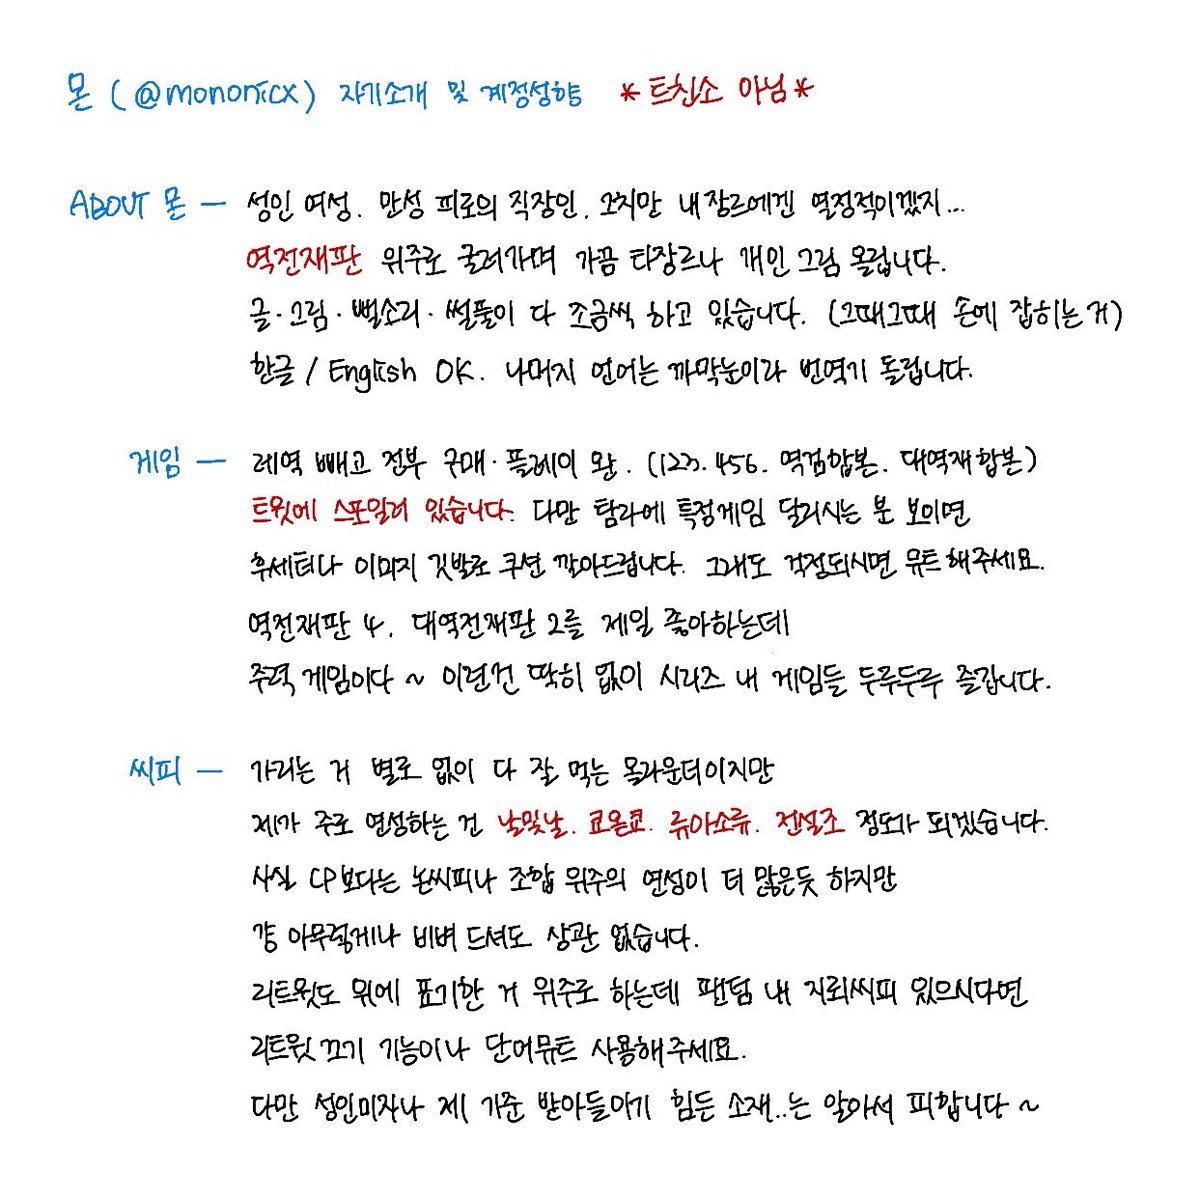 몬 (@mononicx) 자기소개 및 계정성향 *트친소 아님*
ABOUT 몬 — 성인 여성. 만성 피로의 직장인. 오지만 내장르에겐 열정적이겠지...
역전재판 위주로 굴러가며 가끔 타장르나 개인 그림 올립니다.
글·그림·뻘소리·썰풀이 다 조금씩 하고 있습니다. (그때그때 손에 잡히는 거)
한글 / English OK. 나머지 언어는 까막눈이라 번역기 돌립니다.
게임 — 레역 빼고 전부 구매·플레이 완. (123. 456. 역검합본. 대역재합본)
트윗에 스포일러 있습니다. 다만 탐라에 특정게임 달리시는 분 보이면
후세터나 이미지 깃발로 쿠션 깔아드립니다. 그래도 걱정되시면 뮤트 해주세요.
역전재판 4. 대역전재판 2를 제일 좋아하는데
주력 게임이다 ~ 이런건 딱히 없이 시리즈 내 게임들 두루두루 즐깁니다.
씨피 — 가리는 거 별로 없이 다 잘 먹는 올라운더이지만
제가 주로 연성하는 건 날밎날. 쿄온쿄. 류아소류. 전설조 정도가 되겠습니다.
사실 CP보다는 논씨피나 조합 위주의 연성이 더 많은듯 하지만
걍 아무렇게나 비벼 드셔도 상관 없습니다.
리트윗도 위에 표기한 거 위주로 하는데 팬덤 내 지뢰씨피 있으시다면
리트윗 끄기 기능이나 단어뮤트 사용해주세요.
다만 성인미자나 제 기준 받아들이기 힘든 소재..는 알아서 피합니다 ~